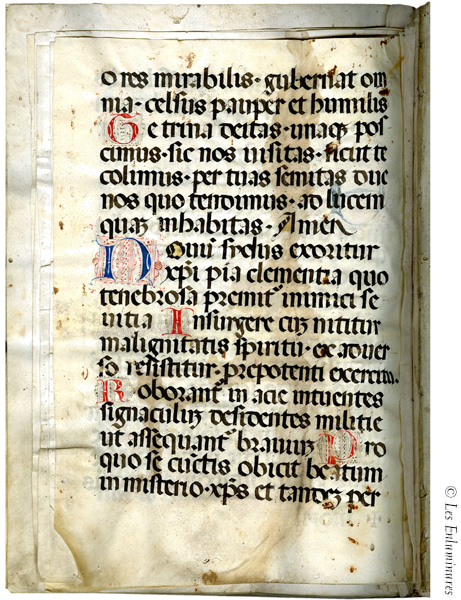 o res mirabilis · gubernat om
nia · celsus pauper et humilis
Te trina deitas · unaq; pos
cimus · sic nos visitas · sicut te
colimus · per tuas semitas duc
nos quo tendimus · ad lucem
quaz inhabitas · Amen
Noviu sydus exoritur
xpi pia clementia quo
tenebrosa premit inimici se
vitia Insurgere cuz nititur
malignitatis spiritu · ex adver
so resistitur · prepotenti exercitu.
Roborant in acie intuentes
signaculuz desidentes militie
ut assequant bravuz Pro
quo se cunctis obicit beatum
in misterio · xps et tandez per
© Les Enluminures